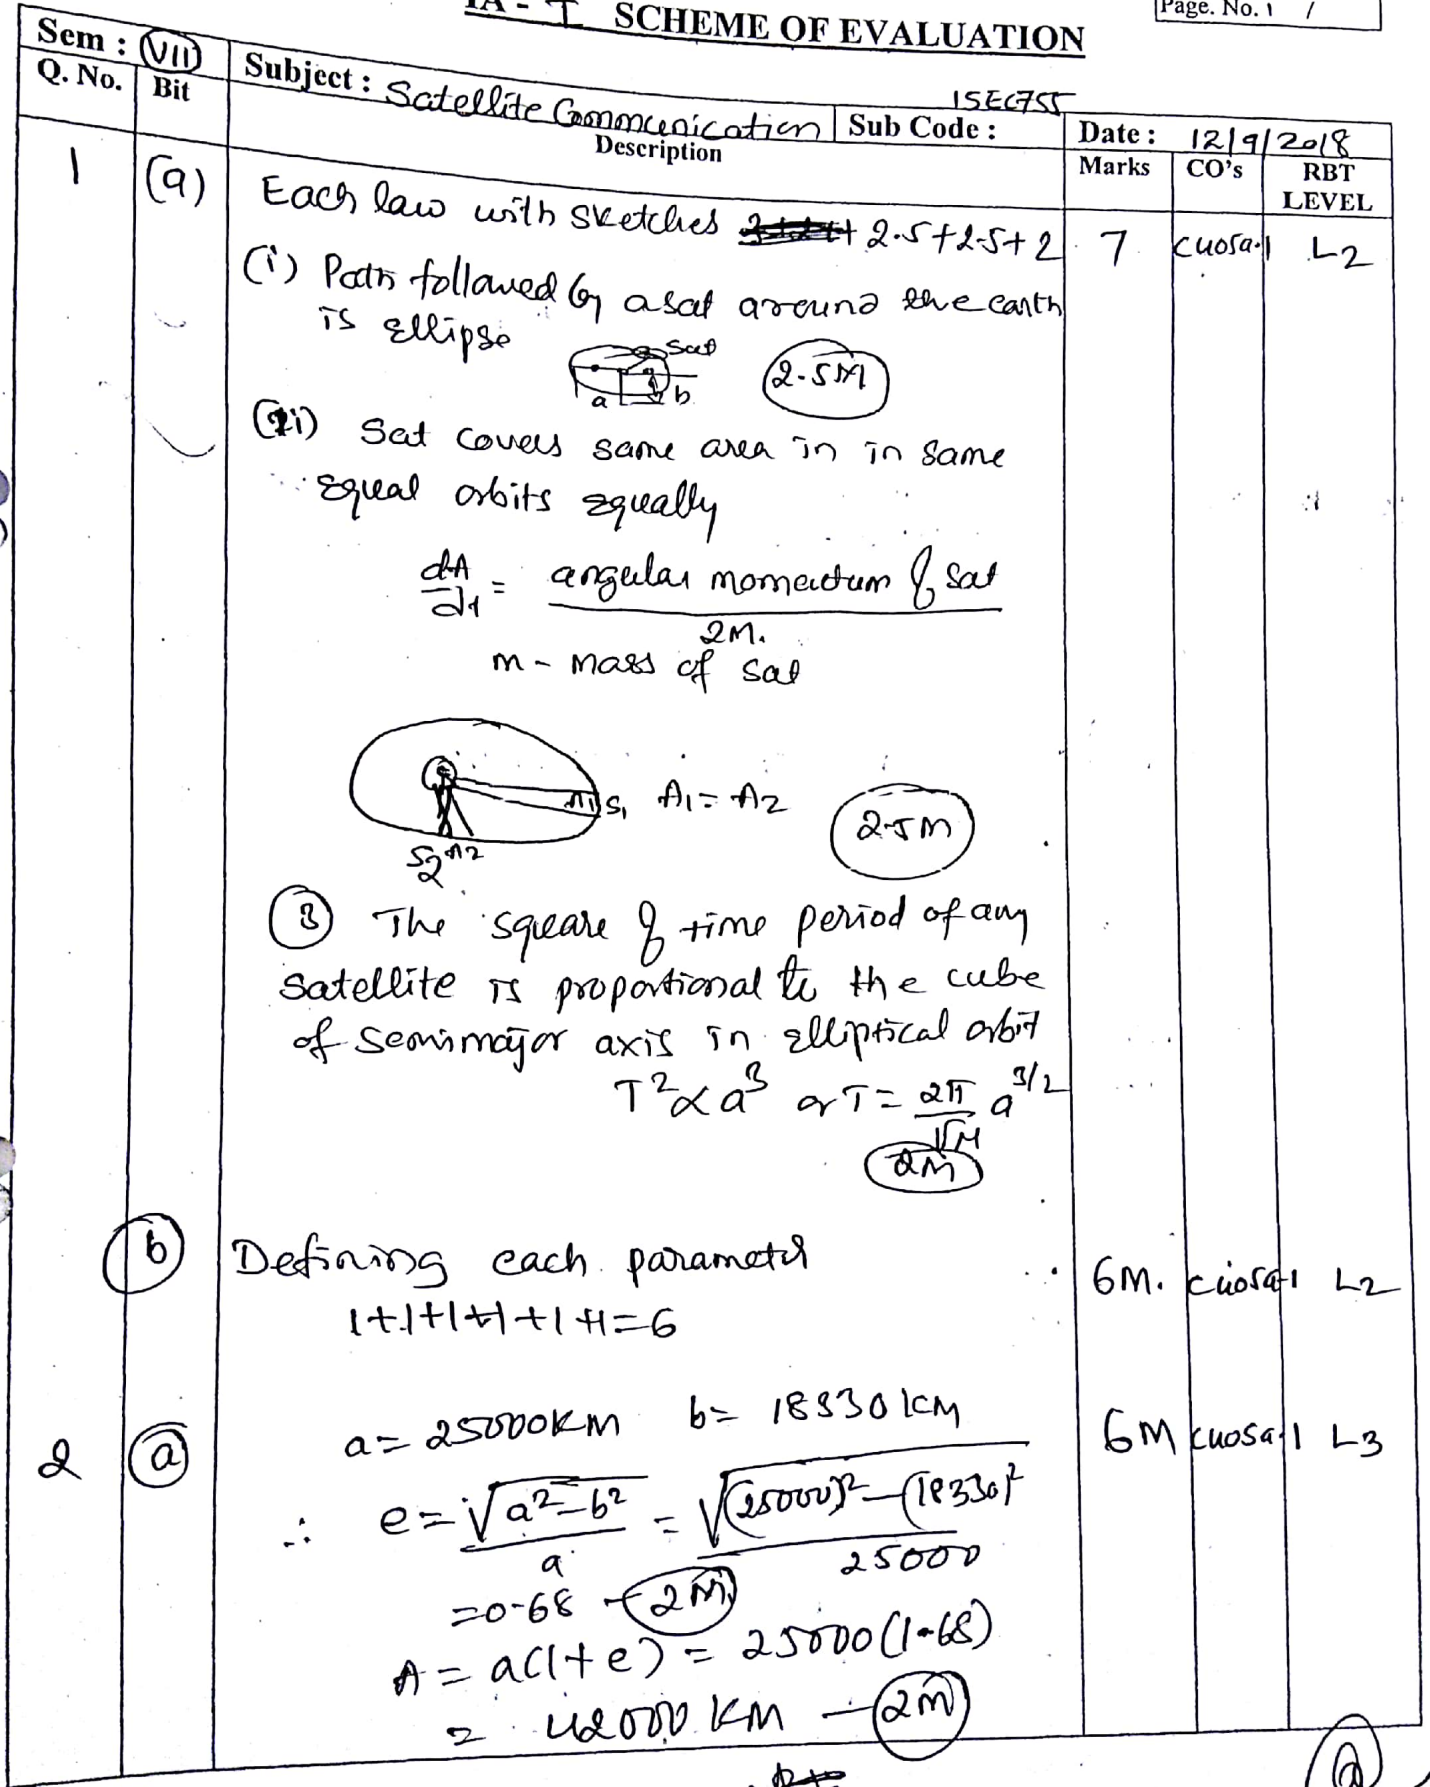 IA - I SCHEME OF EVALUATION
Page. No. 1 /
Sem : VII
Subject : Satellite Communication
Sub Code : 15EC755
Date : 12/9/2018
Q. No. Bit Description Marks CO's RBT LEVEL
1 (a) Each law with sketches 2.5+2.5+2 7 L2
(i) Path followed by a sat around the earth
is ellipse
sat
a b
2.5M
(ii) Sat covers same area in in same
equal orbits equally
dA/dt = angular momentum of sat / 2M.
m - mass of sat
A1 S1 A1 = A2
2.5M
S2 A2
3 The square of time period of any
satellite is proportional to the cube
of semimajor axis in elliptical orbit
T² ∝ a³ or T = 2π/√μ a^3/2
2M
b Defining each parameter 6M. L2
1+1+1+1+1+1=6
2 a a = 25000KM b = 18330 KM 6M L3
∴ e = √a²-b² / a = √(25000)²-(18330)² / 25000
=0.68 - 2M
A = a(1+e) = 25000(1.68)
= 42000 KM - 2m